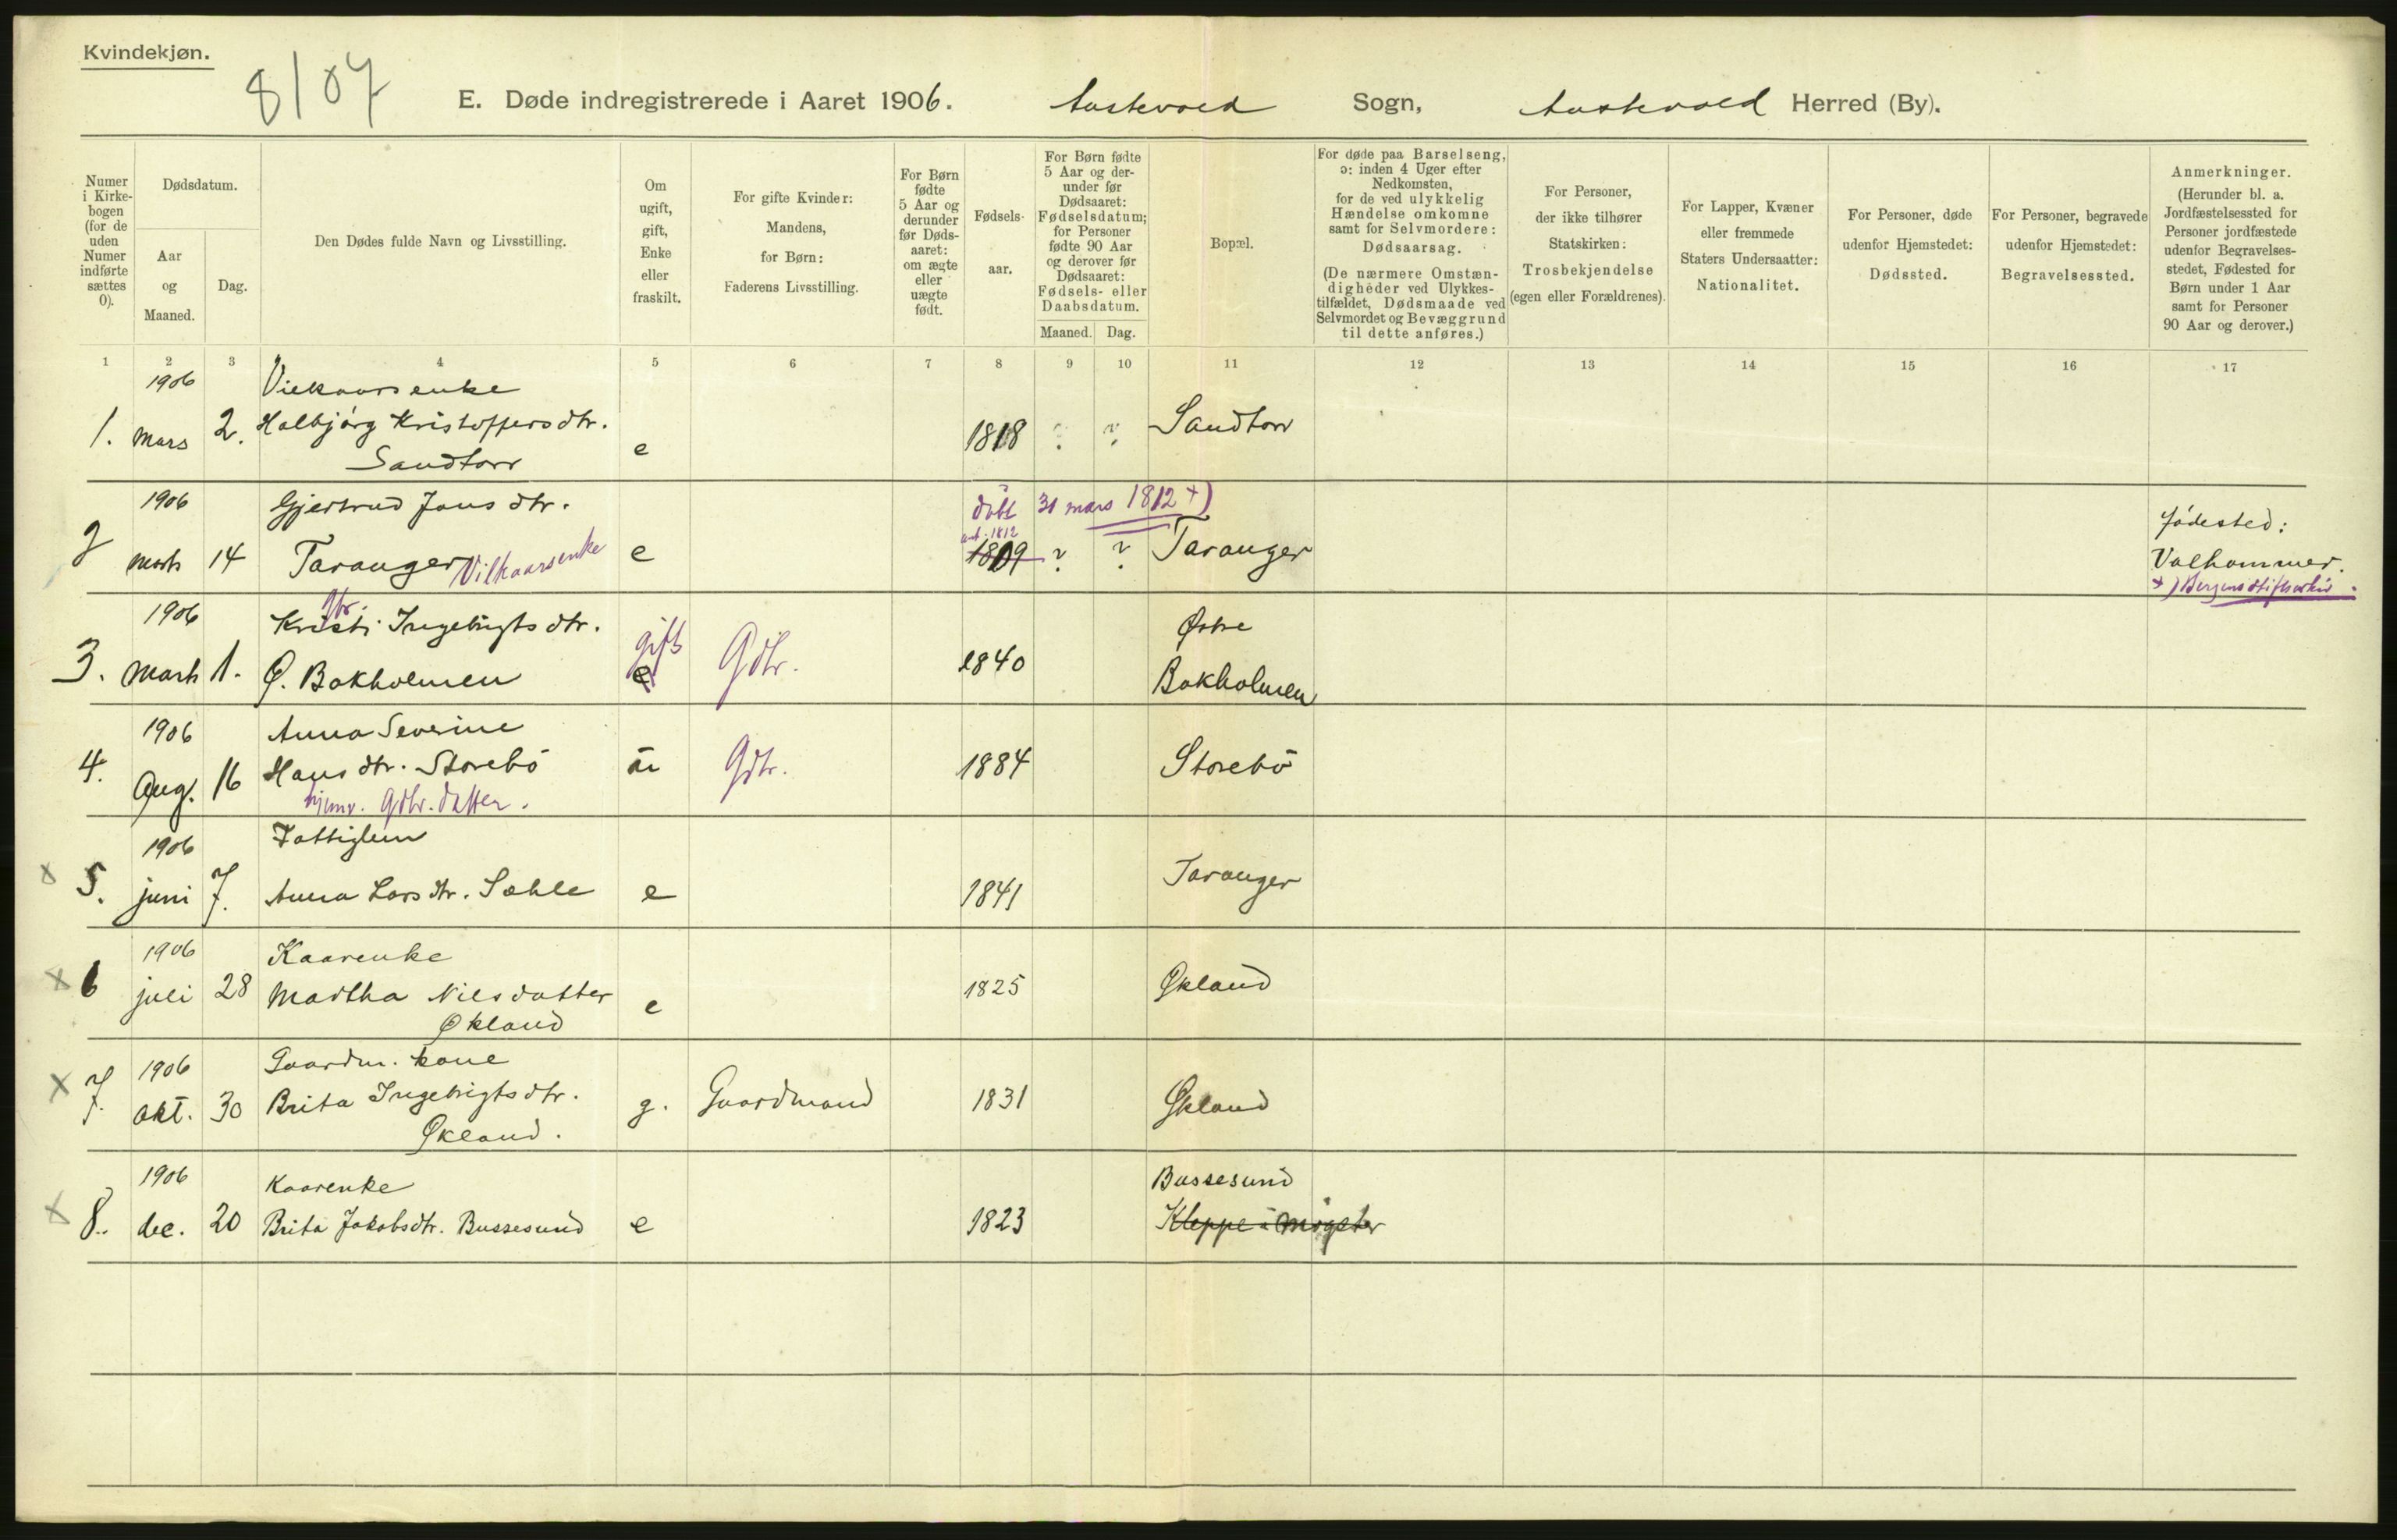 Kvindekjøn.
8/07
E. Døde indregistrerede i Aaret 1906. Austevold Sogn, Austevold Herred (By).
Numer i Kirkebogen (for de uden Numer indførte sættes 0).
Dødsdatum.
Aar og Maaned.
Dag.
Den Dødes fulde Navn og Livsstilling.
Om ugift, gift, Enke eller fraskilt.
For gifte Kvinder: Mandens, for Børn: Faderens Livsstilling.
For Børn fødte 5 Aar og derunder før Dødsaaret: om ægte eller uægte født.
Fødselsaar.
For Børn fødte 5 Aar og derunder før Dødsaaret: Fødselsdatum; for Personer fødte 90 Aar og derover før Dødsaaret: Fødsels- eller Daabsdatum.
Maaned. Dag.
Bopæl.
For døde paa Barselseng, ɔ: inden 4 Uger efter Nedkomsten, for de ved ulykkelig Hændelse omkomne samt for Selvmordere: Dødsaarsag.
(De nærmere Omstændigheder ved Ulykkestilfældet, Dødsmaade ved Selvmordet og Bevæggrund til dette anføres.)
For Personer, der ikke tilhører Statskirken: Trosbekjendelse (egen eller Forældrenes).
For Lapper, Kvæner eller fremmede Staters Undersaatter: Nationalitet.
For Personer, døde udenfor Hjemstedet: Dødssted.
For Personer, begravede udenfor Hjemstedet: Begravelsessted.
Anmerkninger.
(Herunder bl. a. Jordfæstelsessted for Personer jordfæstede udenfor Begravelsesstedet, Fødested for Børn under 1 Aar samt for Personer 90 Aar og derover.)
1 2 3 4 5 6 7 8 9 10 11 12 13 14 15 16 17
1906 Vilkaarsenke
1. Mars 2. Halbjørg Kristoffersdtr. e 1818 ? ? Sandtorv
Sandtorv
1906 Gjertrud Jonsdtr. døbt 31 mars 1812 +) fødested:
ant. 1812
2 Marts 14 Taranger Vilkaarsenke e 1809 ? ? Taranger Valhammer.
+) Bergens stiftsarkiv.
1906 Gbr.
Kristi Ingebrigtsdtr. gift Østre
3. Marts 1. Ø. Bakholmen e Gdbr. 1840 Bakholmen
1906 Anna Severine
4. Aug. 16 Hansdtr. Storebö u Gdbr. 1884 Storebö
hjemv. Gdbr. datter.
1906 Fattiglem
x 5. juni 7. Anna Larsdtr. Sæhle e 1841 Taranger
1906 Kaarenke
x 6 juli 28 Martha Nilsdatter e 1825 Økland
Økland
1906 Gaardm. kone
x 7. Okt. 30 Brita Ingebrigtsdtr. g. Gaardmand 1831 Økland
Økland.
1906 Kaarenke Bussesund
x 8. dec. 20 Brita Jakobsdtr. Bussesund e 1823 Kleppe i Møgster